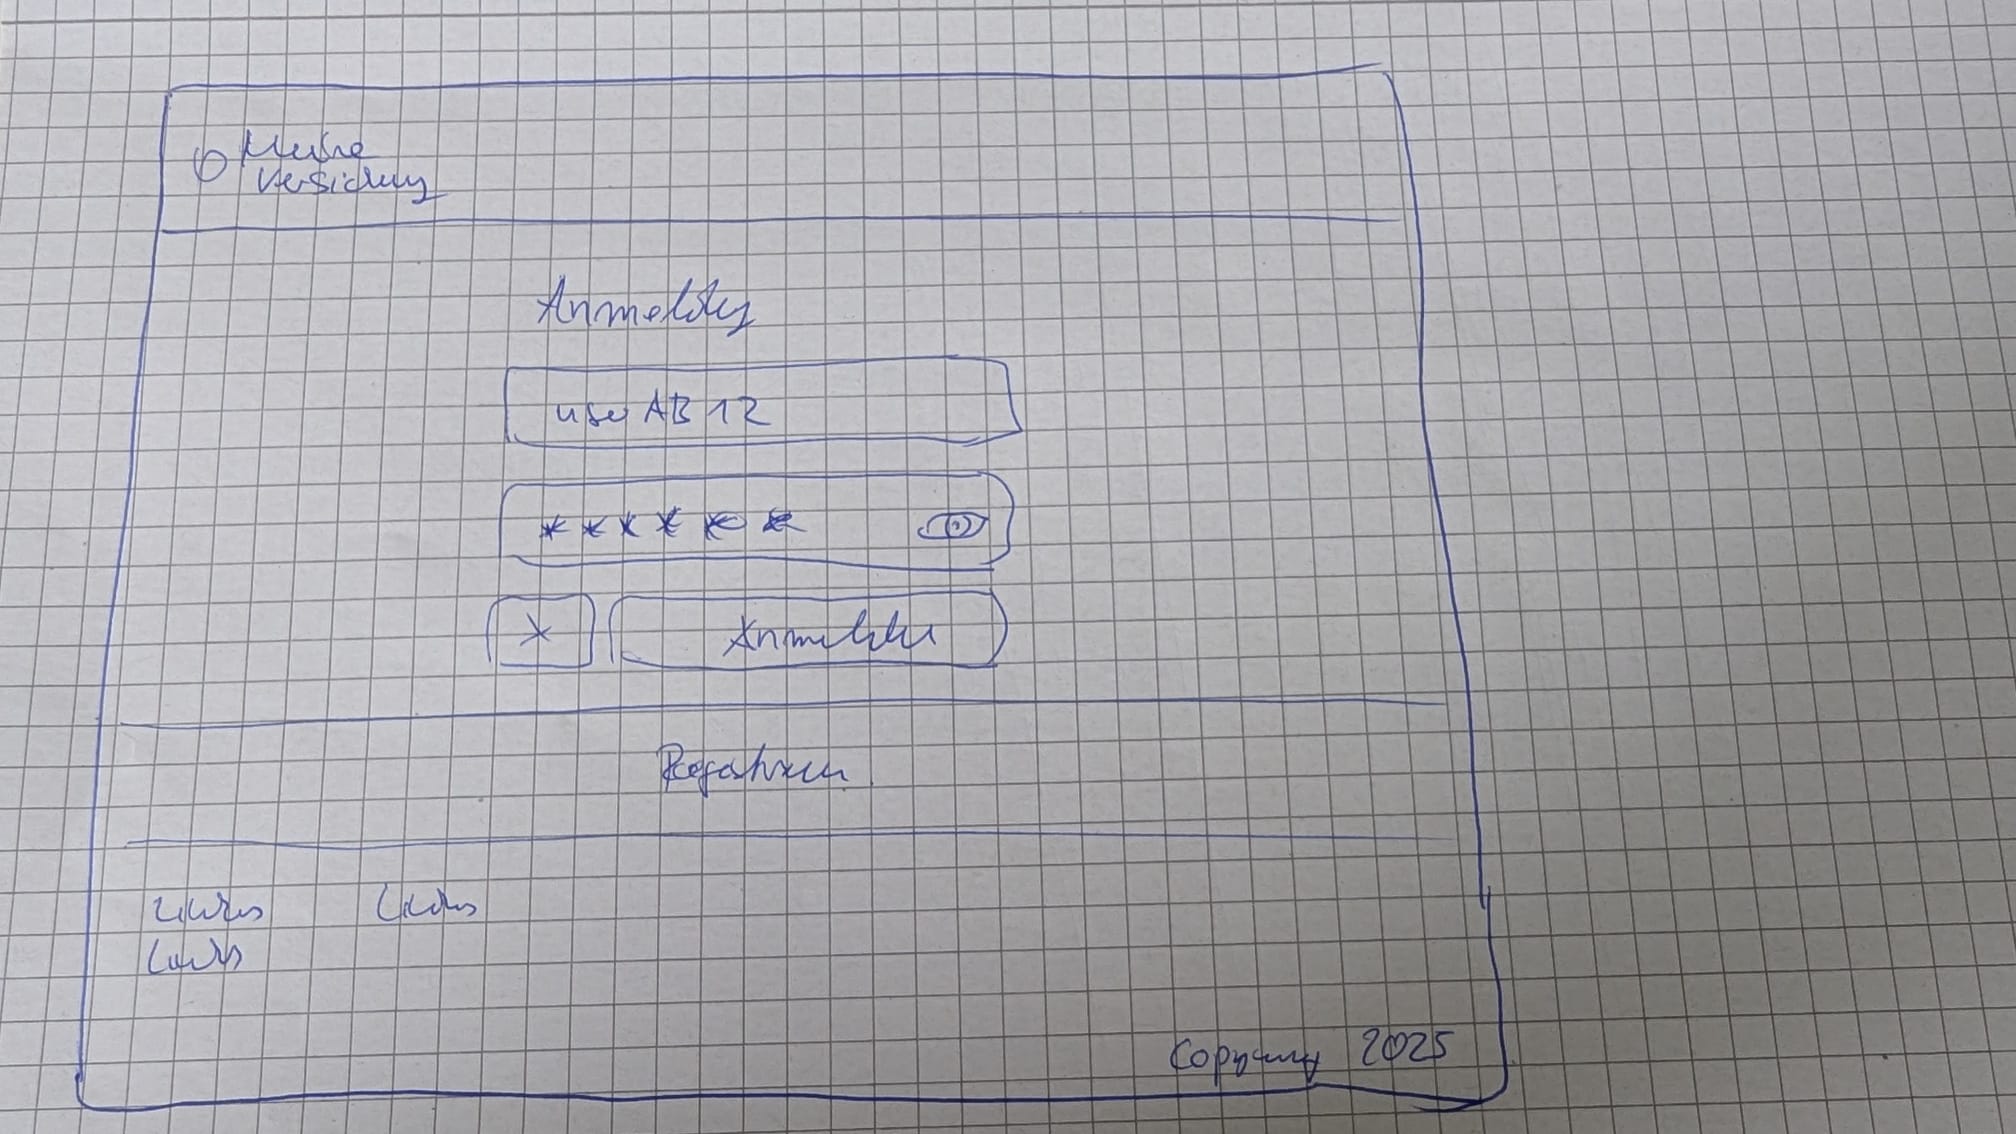 Meine
Versicherung
Anmeldung
user AB 12
******
Anmelden
Registrieren
Links Links
Links
Copyright 2025